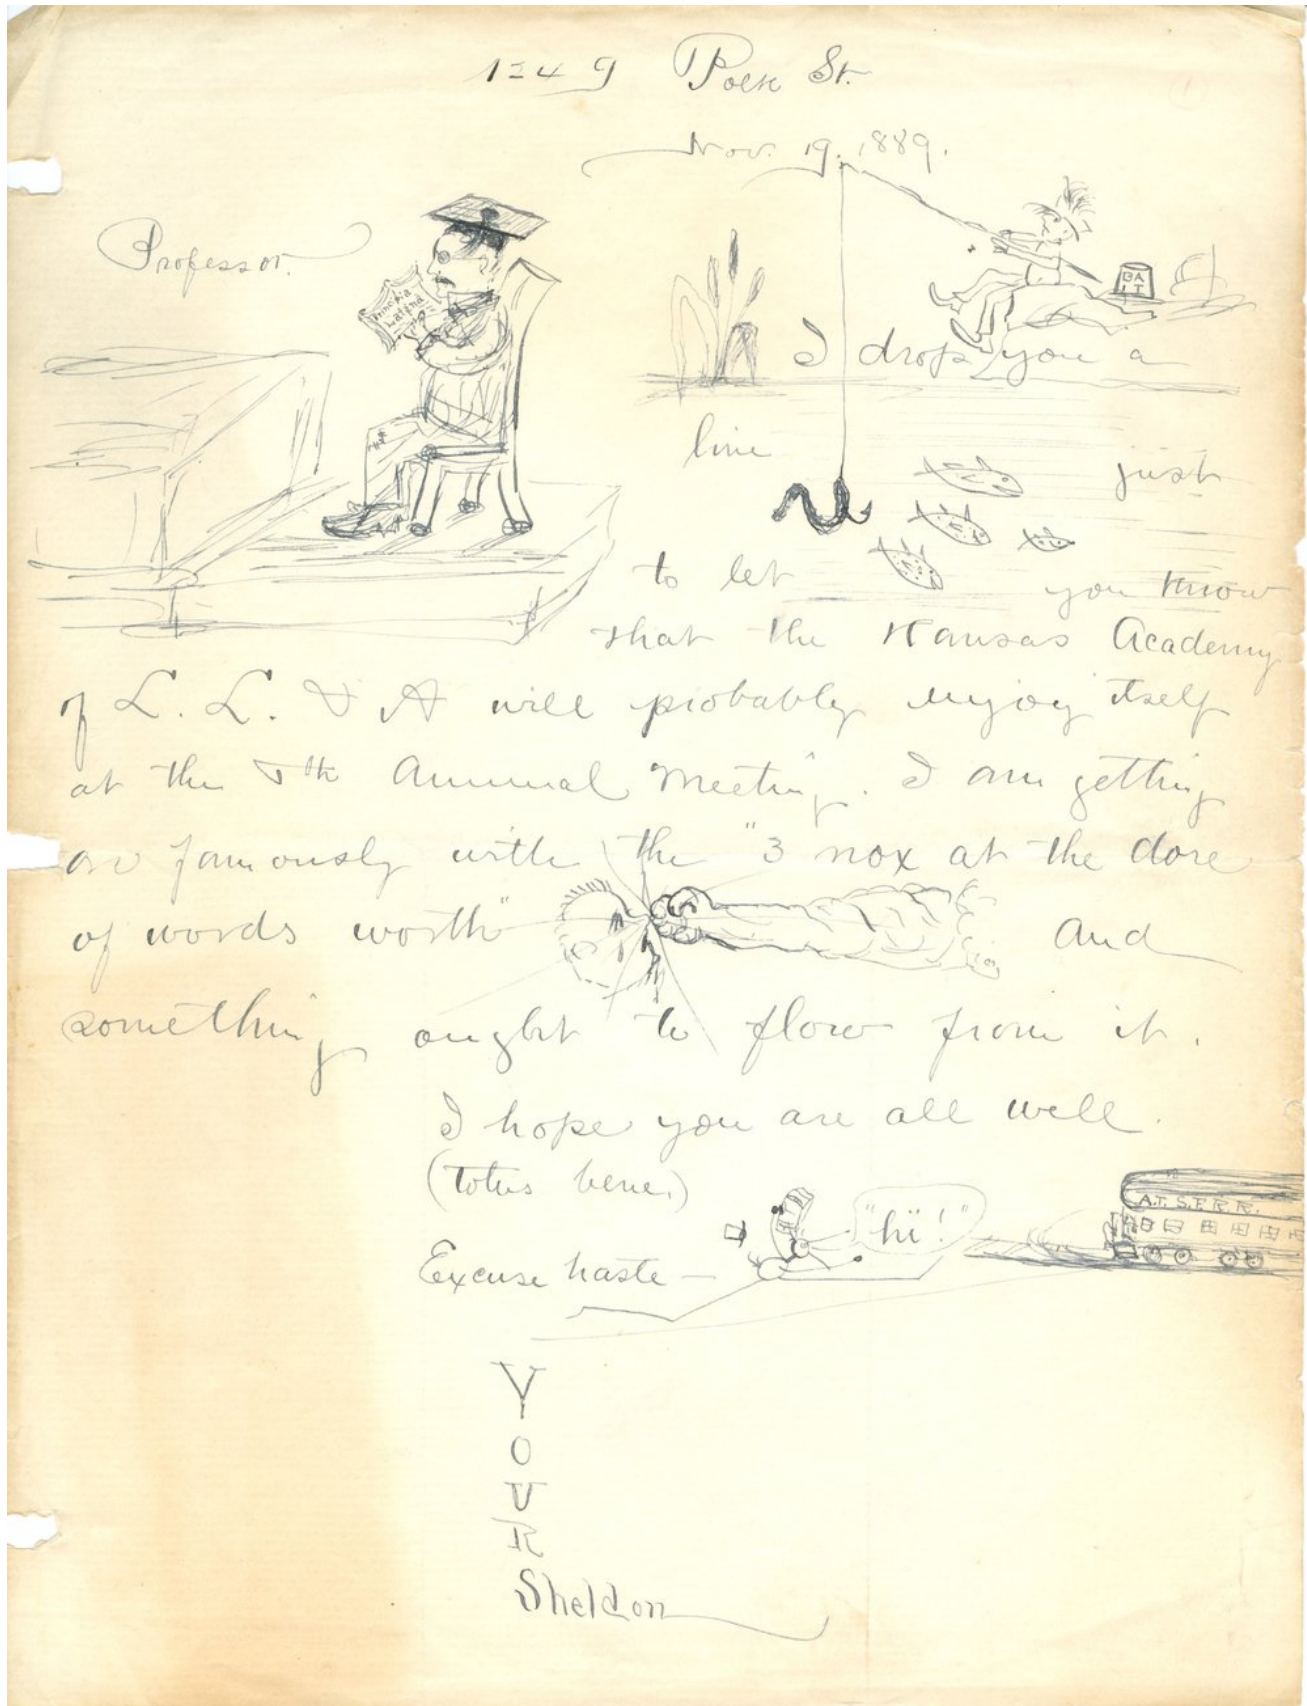 1249 Polk St.
Nov. 19. 1889.
Professor.
Principia
Latina
BA
IT
I drop you a
line just
to let you know
that the Kansas Academy
of L. L. & A will probably enjoy itself
at the 5th Annual Meeting. I am getting
on famously with the "3 nox at the dore
of words worth" And
something ought to flow from it.
I hope you are all well.
(totus bene.)
"hi!"
A.T. S.F. R.R.
Excuse haste —
Y
O
U
R
Sheldon